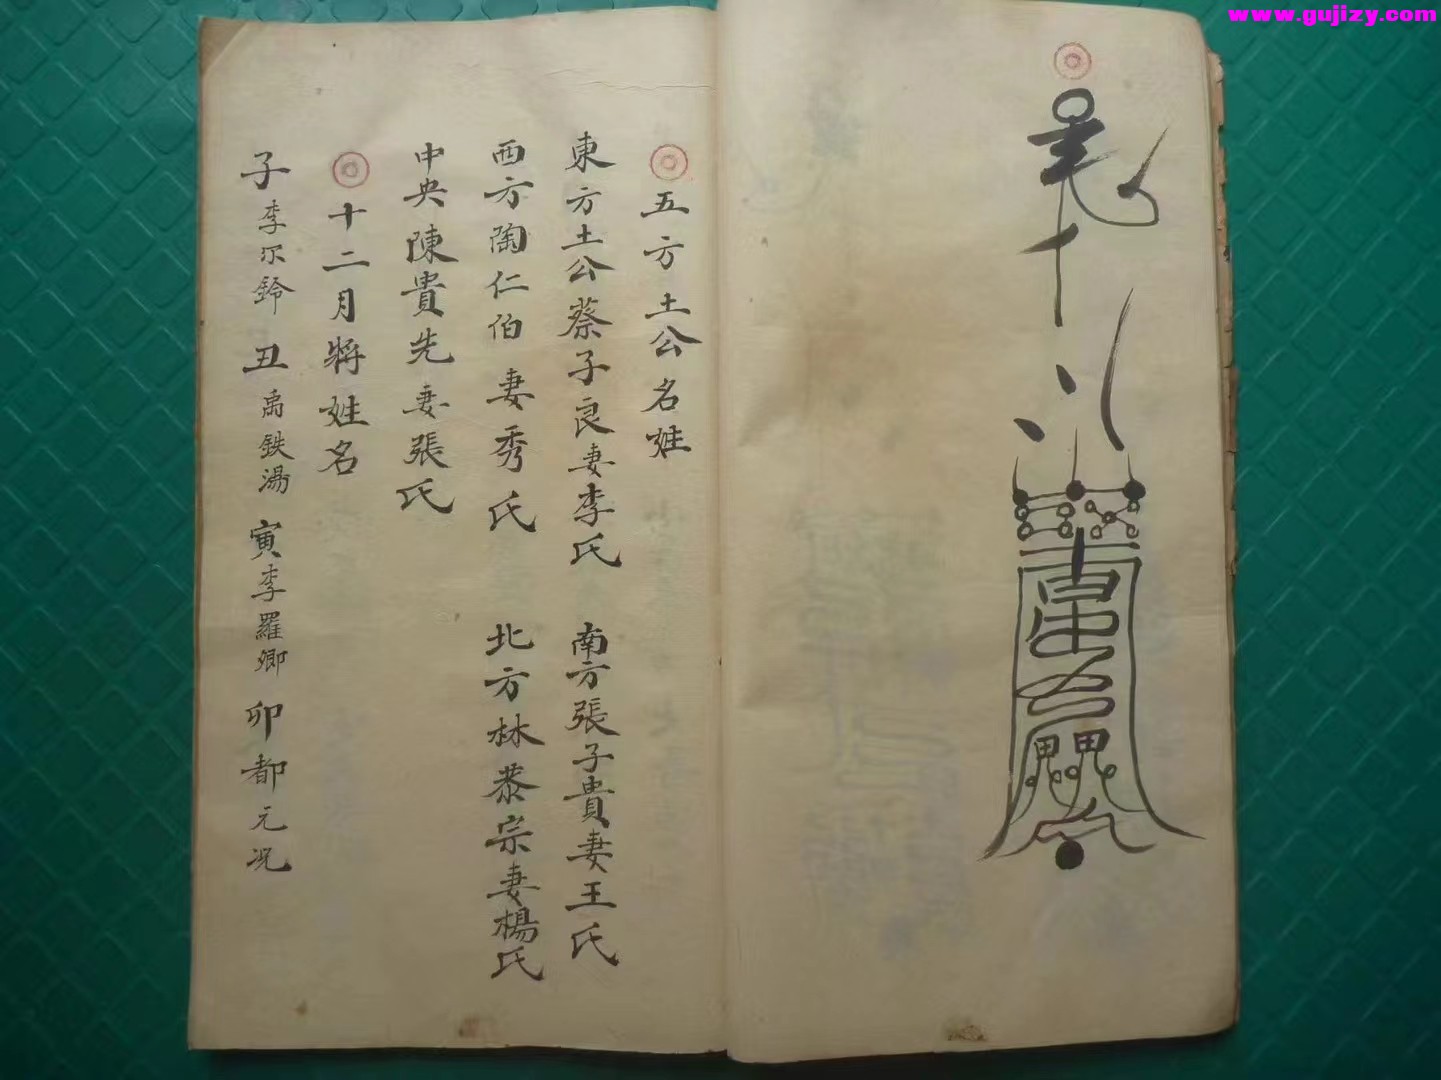 www.gujizy.com
五方土公名姓
東方土公蔡子良妻李氏 南方張子貴妻王氏
西方陶仁伯妻秀氏 北方林恭宗妻楊氏
中央陳貴先妻張氏
十二月將姓名
子李尔鈴 丑禹鉄湯 寅李羅卿 卯都元况